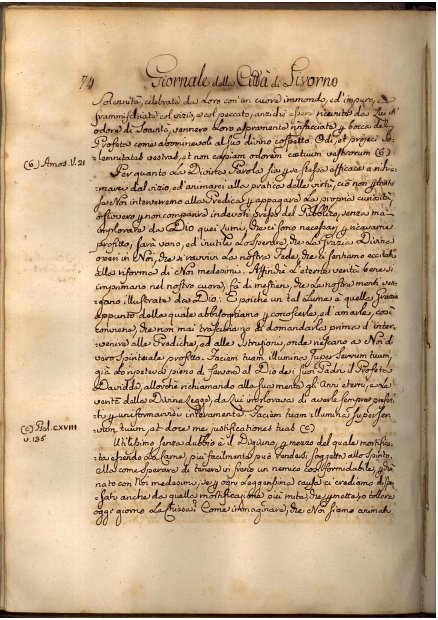 74 Giornale della Città di Livorno
Solennità, celebrate da Loro con un cuore immondo, ed impuro, e
frammischiate col vizio, e col peccato, anziché essere ricevute da Lui in
odore di Soavità, vennero Loro aspramente rinfacciate per bocca del
Profeta come abominevoli al suo divino cospetto. Odi, et projeci So-
lemnitates vestras, et non capiam odorem coetuum vestrorum (6)
(6) Amos. V. 21
Per quanto La Divina Parola sia per se stessa efficace a ritrarre
dal vizio, ed animarci alla pratica delle virtù, ciò non
se Noi interverremo alla Predica per appagare La propria curiosità
o per non comparire indevoti presso del Pubblico, senza
implorare da Dio quei Lumi, che ci sono necessari per ricavarne
profitto, sarà vano, ed inutile Lo sperare, che La Grazia Divina
operi in Noi, che si ravvivi La nostra Fede, che ci sentiamo eccitati
alla riforma di Noi medesimi. Affinché Le eterne verità bene si
imprimano nel nostro cuore, fà di mestieri, che La nostra mente ven-
ga illustrata da Dio. E poiché un tal Lume è quella Grazia
appunto della quale abbisogniamo per conoscerle, ed amarle, così
conviene, che non mai trascuriamo di domandarla prima d'inter-
venire alle Prediche, ed alle Istruzioni, onde riescano a Noi di
vero Spirituale profitto. Faciem tuam illumina super Servum tuum,
già Lo ripeteva pieno di fervore al Dio de' suoi Padri il Profeta
Davidde, allorché richiamando alla sua mente gli Anni eterni, e La
verità della Divina Legge, da Lui implorava di averle sempre presenti
per uniformarvisi interamente. Faciem tuam illumina super Ser-
vum tuum, et doce me justificationes tuas (c)
(c) Psal. CXVIII
v. 135
Utilissimo senza dubbio è il Digiuno, per mezzo del quale mortifica-
ta essendo La Carne, più facilmente può rendersi soggetta allo Spirito.
Ma come sperare di tenere in freno un nemico così formidabile,
nato con Noi medesimi, se per ogni Leggerissima causa ci crediamo dispen-
sati anche da quella mortificazione più mite, che permette, e tollera
oggi giorno La Chiesa? Come immaginare, che Noi siamo animati